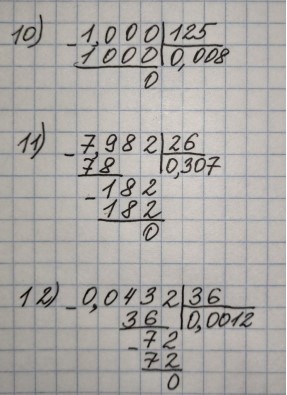 10) - 1,000 | 125
1000 | 0,008
0
11) - 7,982 | 26
78 | 0,307
- 182
182
0
12) - 0,0432 | 36
36 | 0,0012
- 72
72
0